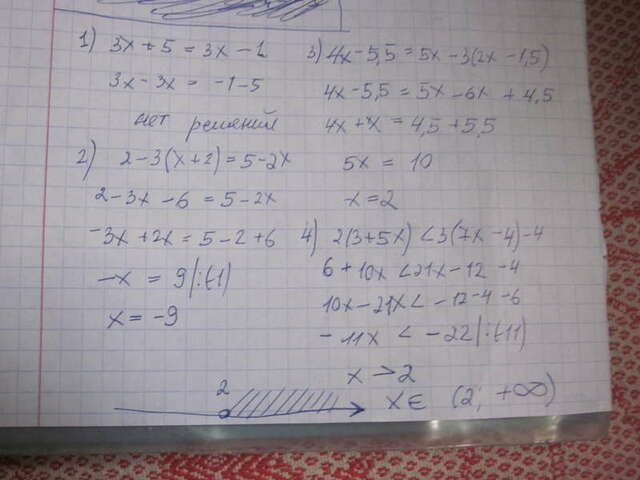 1) 3x + 5 = 3x - 1
3x - 3x = -1 - 5
нет решений
2) 2 - 3(x + 2) = 5 - 2x
2 - 3x - 6 = 5 - 2x
-3x + 2x = 5 - 2 + 6
-x = 9 |:(-1)
x = -9
3) 4x - 5,5 = 5x - 3(2x - 1,5)
4x - 5,5 = 5x - 6x + 4,5
4x + x = 4,5 + 5,5
5x = 10
x = 2
4) 2(3 + 5x) < 3(7x - 4) - 4
6 + 10x < 21x - 12 - 4
10x - 21x < -12 - 4 - 6
-11x < -22 |:(-11)
x > 2
2
x ∈ (2; +∞)